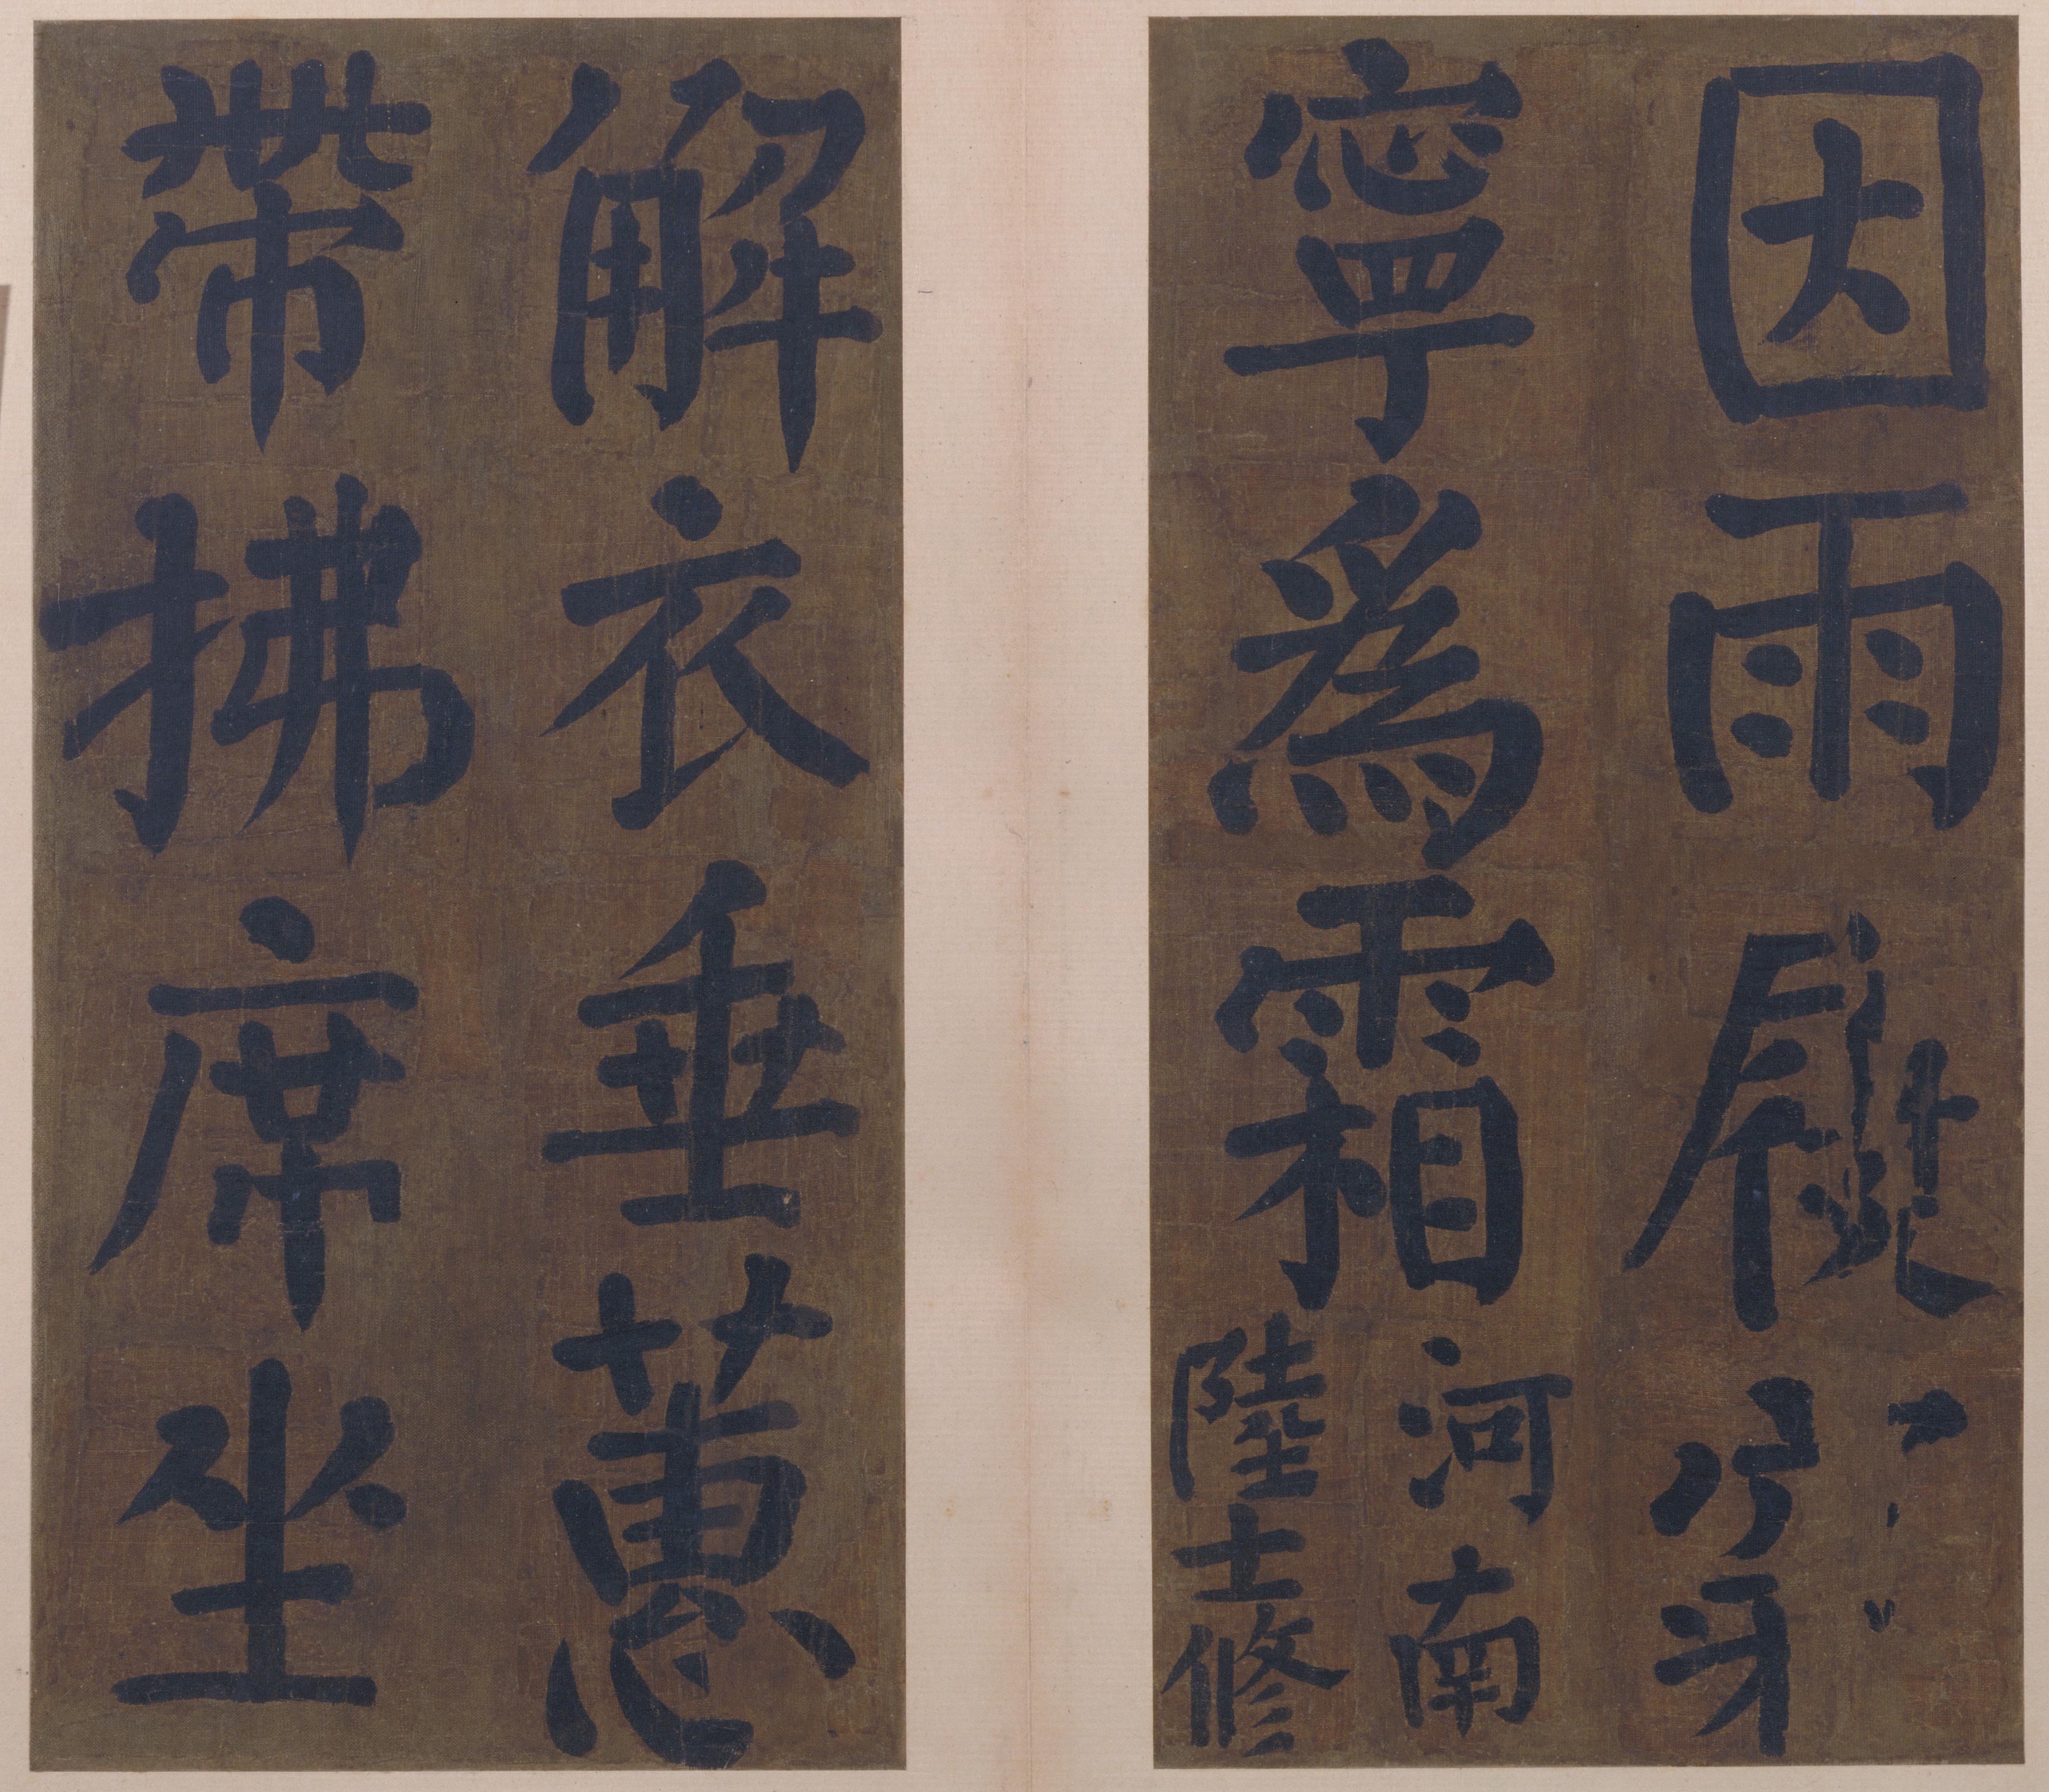 因雨履穿
寧爲霜河南
陸士修
解衣垂蕙
帶拂席坐